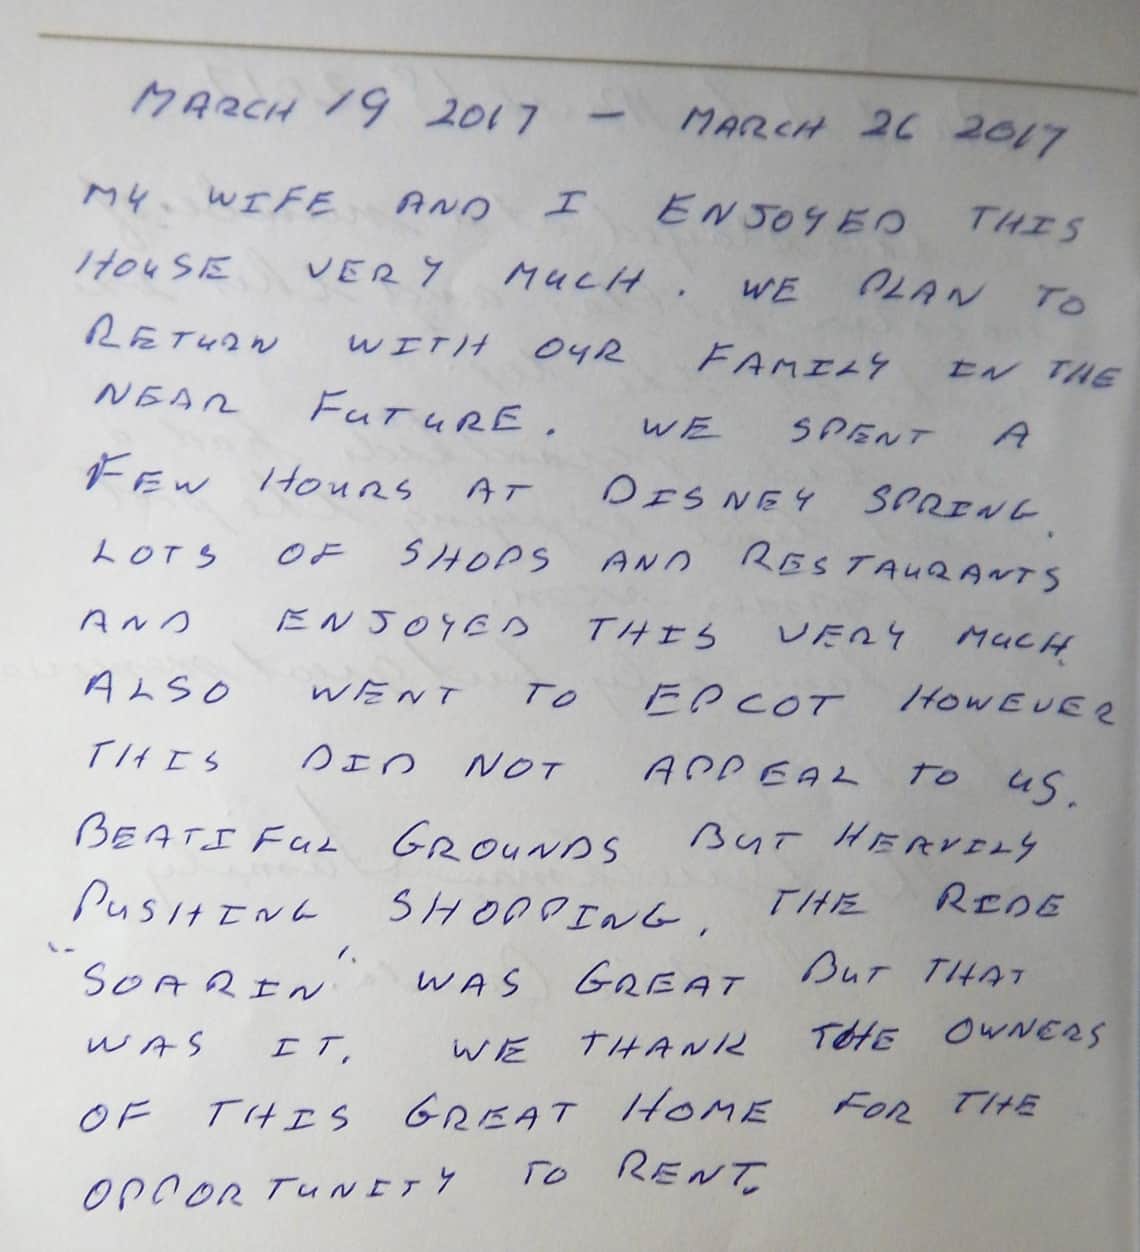 MARCH 19 2017 - MARCH 26 2017
MY WIFE AND I ENJOYED THIS
HOUSE VERY MUCH. WE PLAN TO
RETURN WITH OUR FAMILY IN THE
NEAR FUTURE. WE SPENT A
FEW HOURS AT DISNEY SPRING.
LOTS OF SHOPS AND RESTAURANTS
AND ENJOYED THIS VERY MUCH.
ALSO WENT TO EPCOT HOWEVER
THIS DID NOT APPEAL TO US.
BEATIFUL GROUNDS BUT HEAVILY
PUSHING SHOPPING. THE RIDE
"SOARIN" WAS GREAT BUT THAT
WAS IT. WE THANK THE OWNERS
OF THIS GREAT HOME FOR THE
OPPORTUNITY TO RENT.